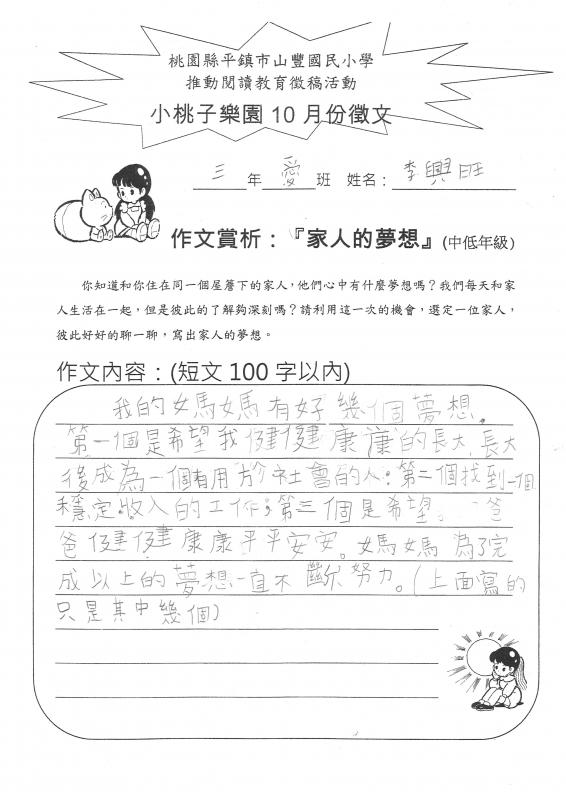 桃園縣平鎮市山豐國民小學
推動閱讀教育徵稿活動
小桃子樂園 10 月份徵文
三年 愛 班 姓名：李興旺
作文賞析：『家人的夢想』(中低年級)
你知道和你住在同一個屋簷下的家人，他們心中有什麼夢想嗎？我們每天和家
人生活在一起，但是彼此的了解夠深刻嗎？請利用這一次的機會，選定一位家人，
彼此好好的聊一聊，寫出家人的夢想。
作文內容：(短文 100 字以內)
我的媽媽有好幾個夢想，
第一個是希望我健健康康的長大，長大
後成為一個有用於社會的人；第二個找到一個
穩定收入的工作；第三個是希望。爸
爸健健康康平平安安。媽媽為了完
成以上的夢想一直不斷努力。(上面寫的
只是其中幾個)